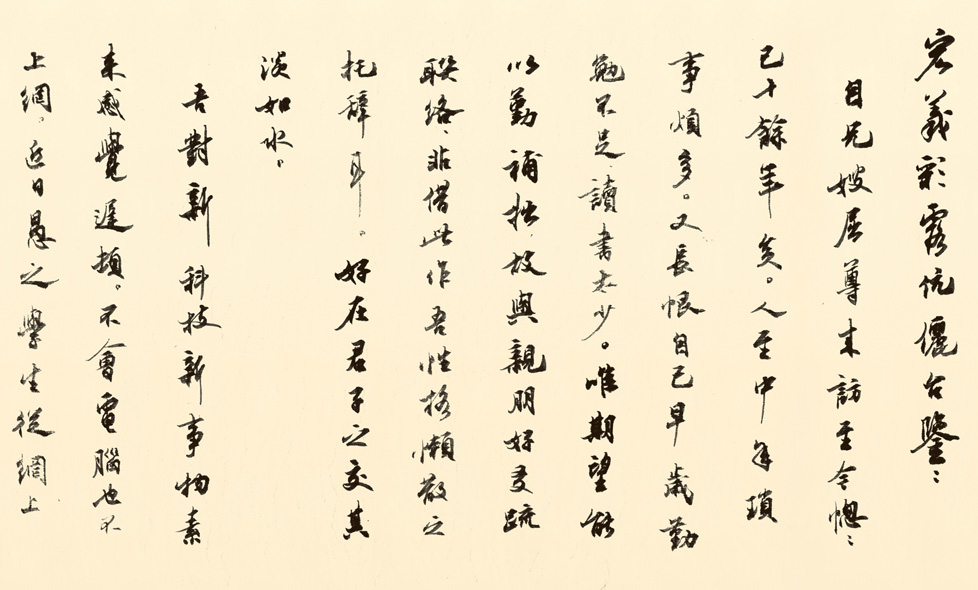 宏義彩霞伉儷台鑒：
自兄嫂屈尊来訪至今悤：
已十餘年矣。人至中年瑣
事煩多。又長恨自己早歲勤
勉不足，讀書太少。唯期望能
以勤補拙，故與親朋好友疏
聯絡，非借此作吾性格懶散之
托辞耳。好在君子之交其
淡如水。
吾對新科技新事物素
来感覺遲頓。不會電腦也不
上網。近日愚之學生從網上